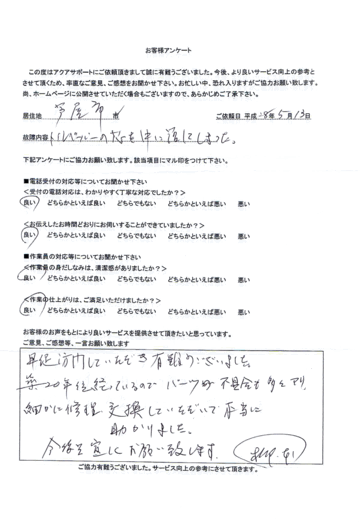 お客様アンケート
この度はアクアサポートにご依頼頂きまして誠に有難うございました。今後、より良いサービス向上の参考と
させて頂くため、率直なご意見、ご感想をお聞かせ下さい。お忙しい中、恐れ入りますがご協力お願い致します。
尚、ホームページに公開させていただく場合もございますので、あらかじめご了承下さい。
居住地 芦屋市 市 ご依頼日 平成28年5月13日
故障内容 トイレットペーパーの芯を 流してしまった。
下記アンケートにご協力お願い致します。該当項目にマル印をつけて下さい。
■電話受付の対応等についてお聞かせ下さい
<受付の電話対応は、わかりやすく丁寧な対応でしたか?>
良い どちらかといえば良い どちらでもない どちらかといえば悪い 悪い
<お伝えしたお時間どおりにお伺いすることができていましたか?>
良い どちらかといえば良い どちらでもない どちらかといえば悪い 悪い
■作業員の対応等についてお聞かせ下さい
<作業員の身だしなみは、清潔感がありましたか?>
良い どちらかといえば良い どちらでもない どちらかといえば悪い 悪い
<作業の仕上がりは、ご満足いただけましたか?>
良い どちらかといえば良い どちらでもない どちらかといえば悪い 悪い
お客様のお声をもとにより良いサービスを提供させて頂きたいと思っています。
ご意見、ご感想等、一言お願い致します
早速訪問していただき有難うございました。
築20年位経っているので パーツの 不具合も多々あり
細かに修理 交換していただいて本当に
助かりました。
今後も宜しくお願い致します。
ご協力有難うございました。サービス向上の参考にさせて頂きます。